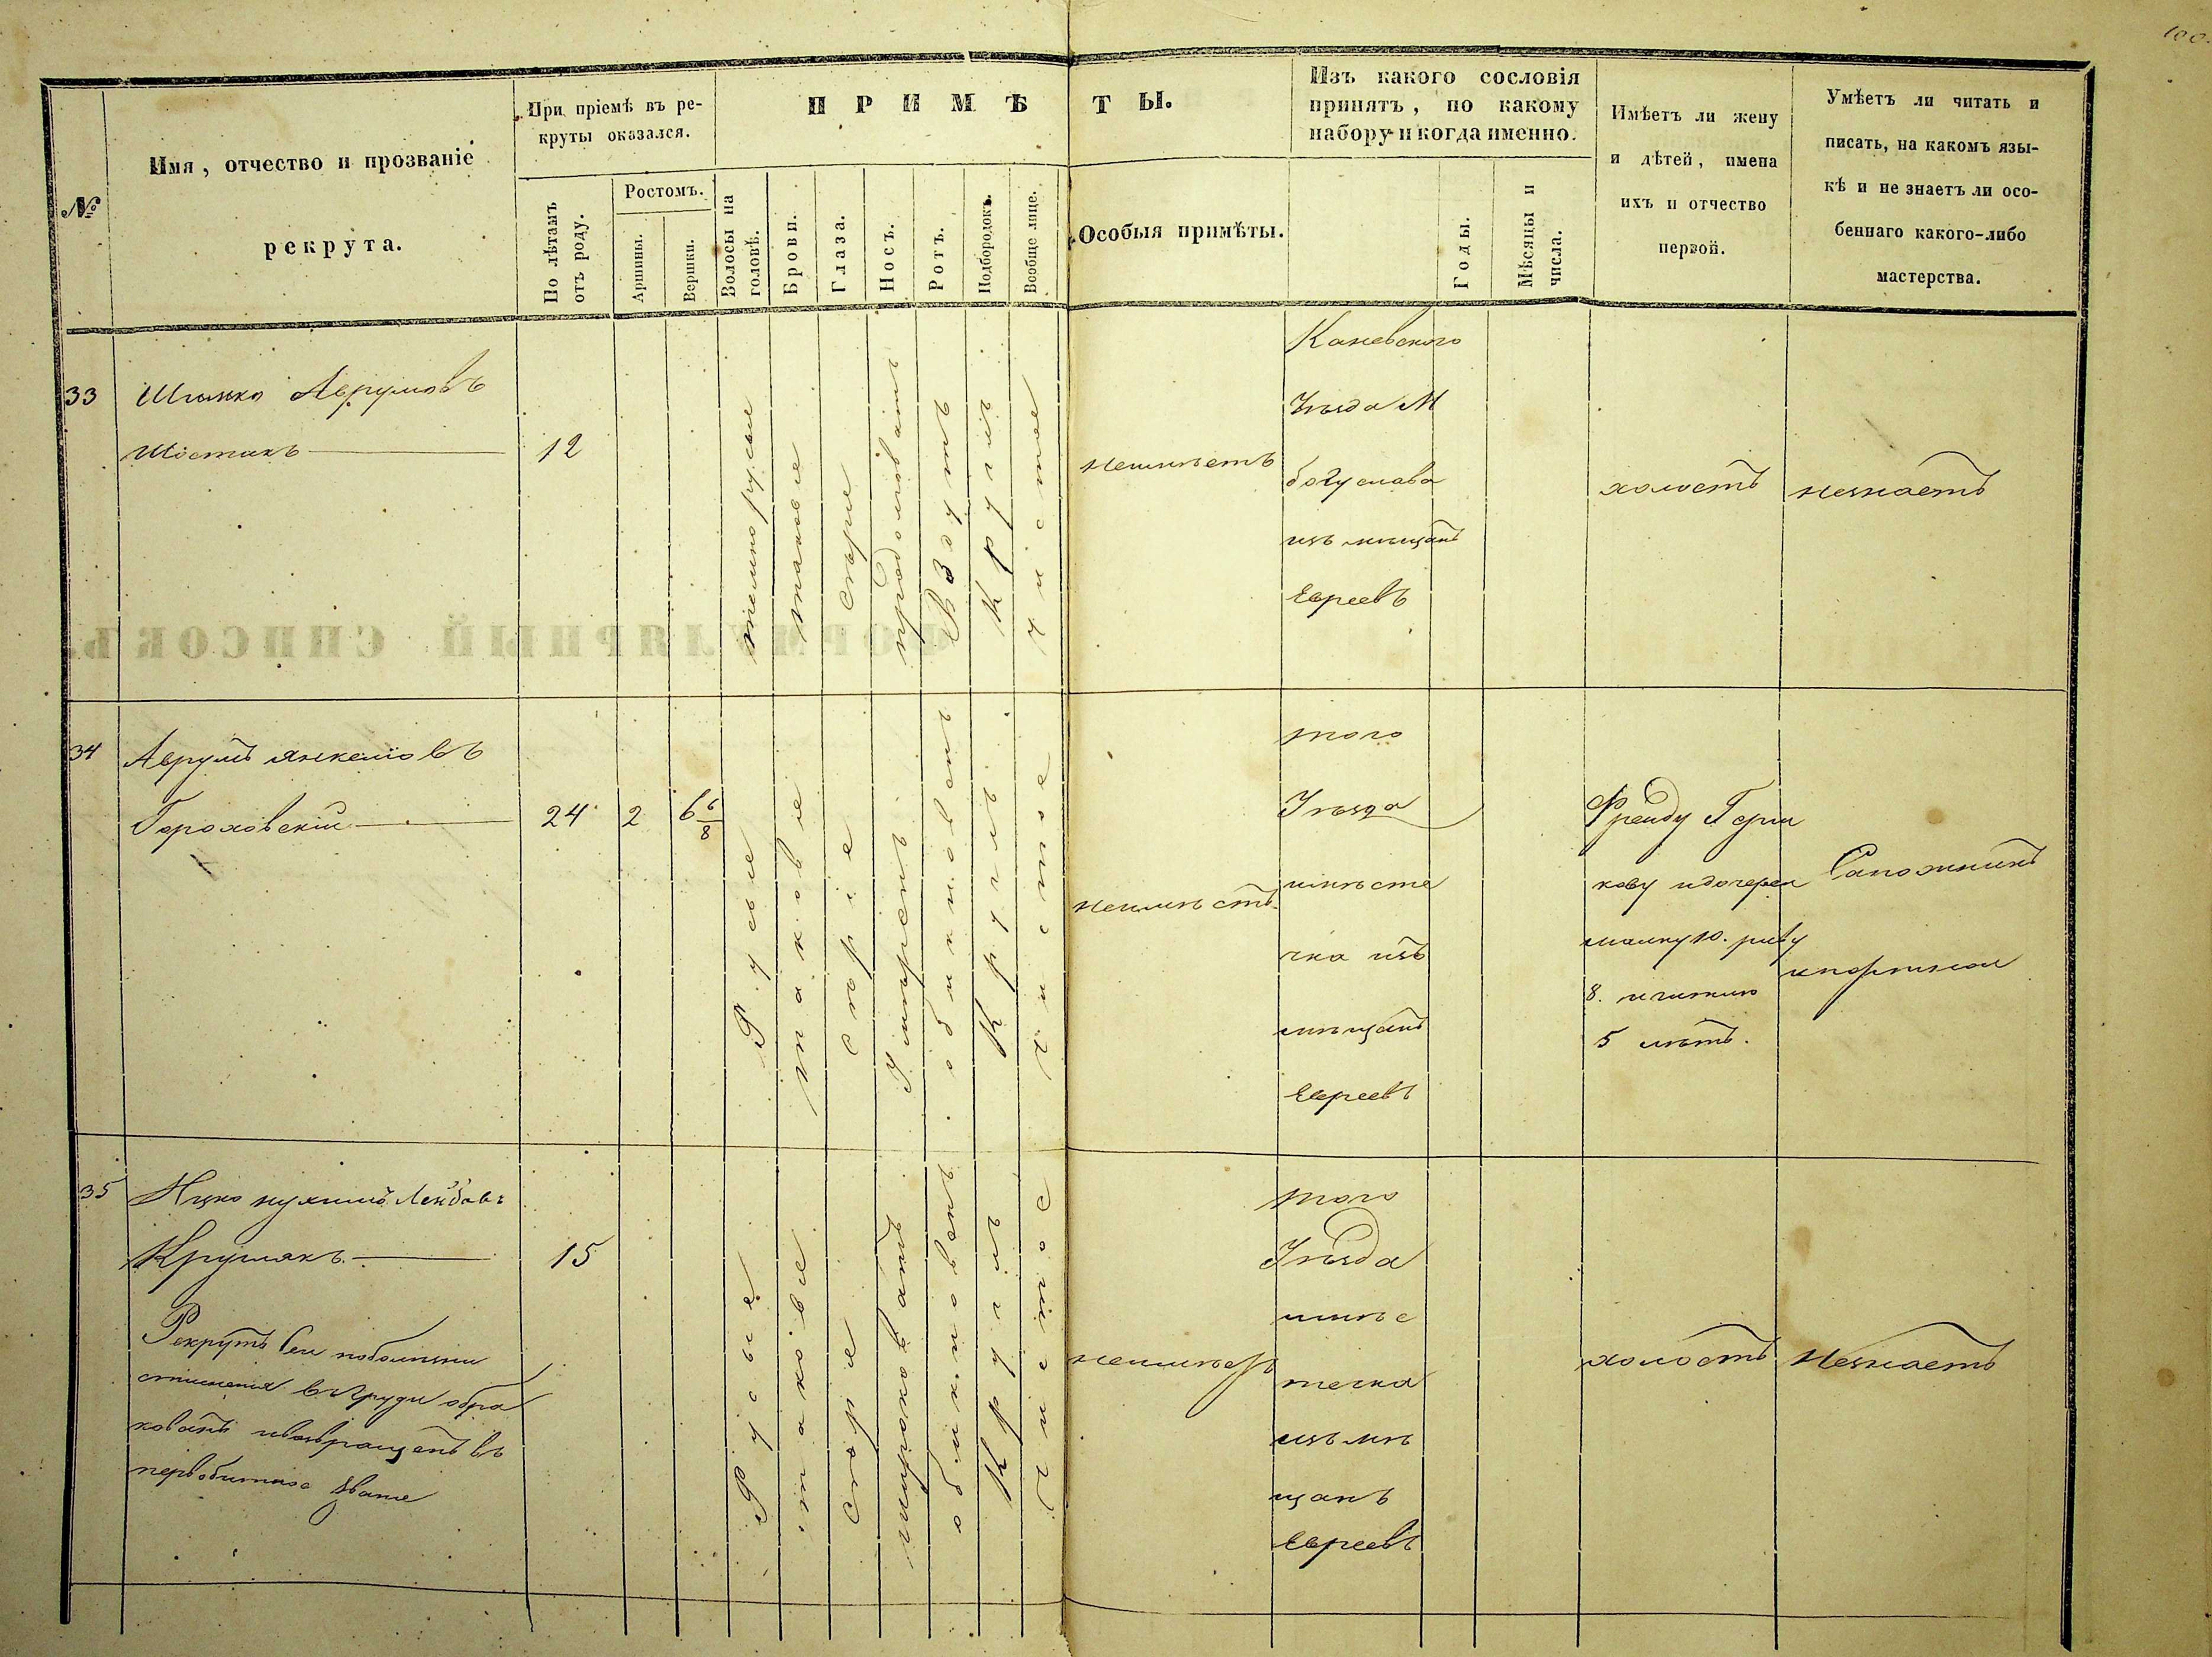 100.
№
Имя, отчество и прозваніе
рекрута.
При пріемѣ въ ре-
круты оказался.
По лѣтамъ
отъ роду.
Ростомъ.
Аршины.
Вершки.
ПРИМѢТЫ.
Волосы на
головѣ.
Брови.
Глаза.
Носъ.
Ротъ.
Подбородокъ.
Вообще лице.
Особыя примѣты.
Изъ какого сословія
принятъ, по какому
набору и когда именно.
Годы.
Мѣсяцы и
числа.
Имѣетъ ли жену
и дѣтей, имена
ихъ и отчество
первой.
Умѣетъ ли читать и
писать, на какомъ язы-
кѣ и не знаетъ ли осо-
беннаго какого-либо
мастерства.
33
Аврумовъ
Шостакъ
12
темнорусые
таковые
серые
продолговатъ
круглъ
чистое
неимеетъ
Каневского
Уезда М
богуслава
изъ мещанъ
Евреевъ
холостъ
незнаетъ
ФОРМУЛЯРНЫЙ СПИСОКЪ.
34
Аврумъ Янкелиовъ
Гороховский
24
2
6 6/8
Русые
таковые
серые
умеренъ
обикновенъ
круглъ
чистое
неимеетъ
того
Уезда
местечка изъ
мещанъ
Евреевъ
Фрейду Герш
кову идочерей
малку 10. риву
8.
5 летъ.
Сапожникъ
ипортной
35
Ицко нухимъ Лейбовъ
Крумякъ
15
Рекрутъ сей поболезни
стиснения вгруди обра
кованъ ивозвращенъ въ
первобитное звание
Русые
таковые
серые
широковатъ
обикновенъ
круглъ
чистое
неимеетъ
того
Уезда
месе
течка
изъ ме
щанъ
Евреевъ
холостъ
Незнаетъ